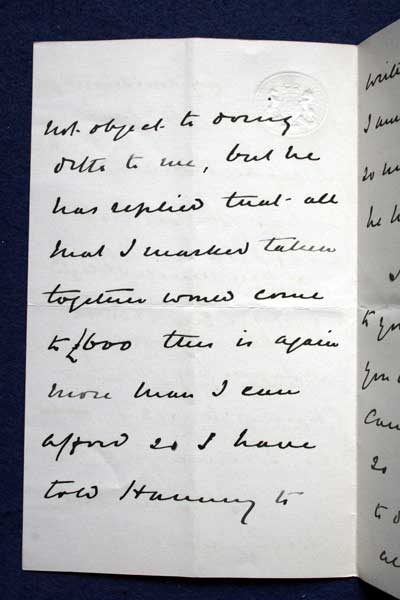 not object to doing
ditto to me, but he
has replied that all
that I marked taken
together would come
to £600 this is again
more than I can
afford so I have
told Hanning to
writi
I am
so m
he h
to you
you
Can
so
to d